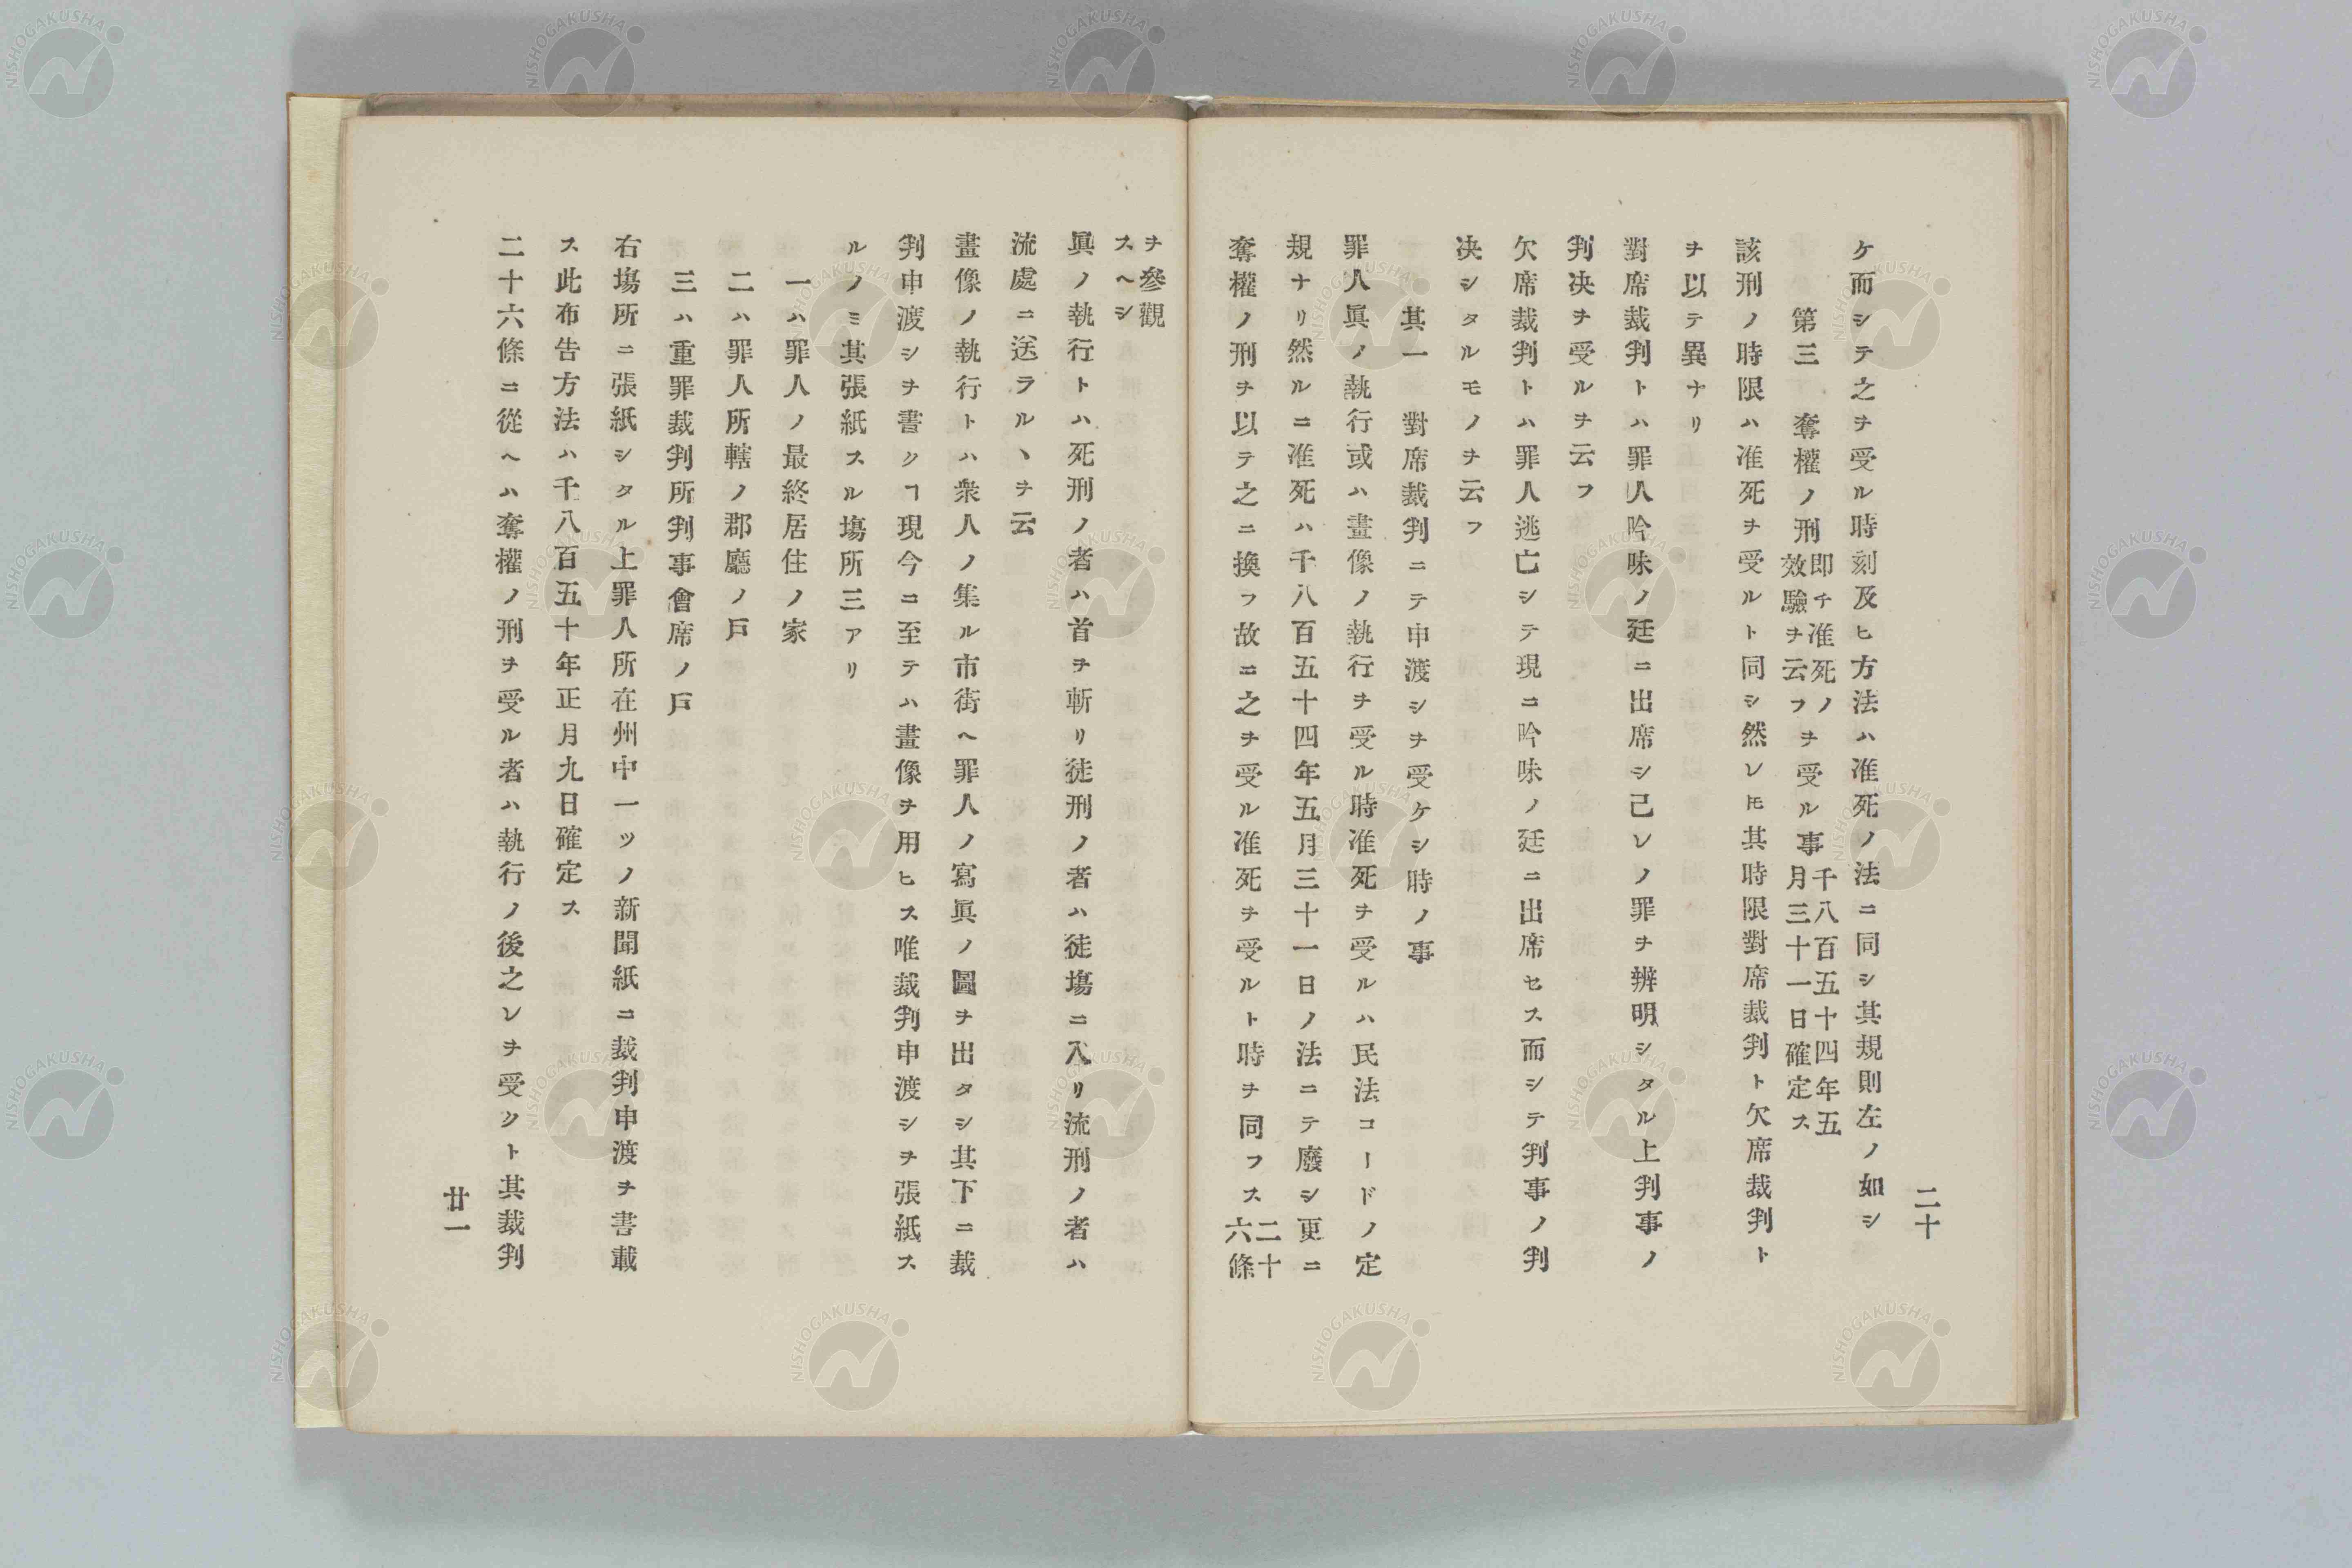 二十
ケ而シテ之ヲ受ル時刻及ヒ方法ハ准死ノ法ニ同シ其規則左ノ如シ
第三 奪權ノ刑即チ准死ノ効驗ヲ云フヲ受ル事千八百五十四年五月三十一日確定ス
該刑ノ時限ハ准死ヲ受ルト同シ然レ𪜈其時限對席裁判ト欠席裁判ト
ヲ以テ異ナリ
對席裁判トハ罪人吟味ノ廷ニ出席シ己レノ罪ヲ辨明シタル上判事ノ
判决ヲ受ルヲ云フ
欠席裁判トハ罪人逃亡シテ現ニ吟味ノ廷ニ出席セス而シテ判事ノ判
决シタルモノヲ云フ
其一 對席裁判ニテ申渡シヲ受ケシ時ノ事
罪人眞ノ執行或ハ畫像ノ執行ヲ受ル時准死ヲ受ルハ民法コードノ定
規ナリ然ルニ准死ハ千八百五十四年五月三十一日ノ法ニテ廢シ更ニ
奪權ノ刑ヲ以テ之ニ換フ故ニ之ヲ受ル准死ヲ受ルト時ヲ同フス二十六條
ヲ參觀スヘシ
眞ノ執行トハ死刑ノ者ハ首ヲ斬リ徒刑ノ者ハ徒塲ニ入リ流刑ノ者ハ
流處ニ送ラルヽヲ云
畫像ノ執行トハ衆人ノ集ル市街ヘ罪人ノ寫眞ノ圖ヲ出タシ其下ニ裁
判申渡シヲ書クヿ現今ニ至テハ畫像ヲ用ヒス唯裁判申渡シヲ張紙ス
ルノミ其張紙スル塲所三アリ
一ハ罪人ノ最終居住ノ家
二ハ罪人所轄ノ郡廳ノ戸
三ハ重罪裁判所判事會席ノ戸
右塲所ニ張紙シタル上罪人所在州中一ツノ新聞紙ニ裁判申渡ヲ書載
ス此布告方法ハ千八百五十年正月九日確定ス
二十六條ニ從ヘハ奪權ノ刑ヲ受ル者ハ執行ノ後之レヲ受クト其裁判
廿一
NISHOGAKUSHA